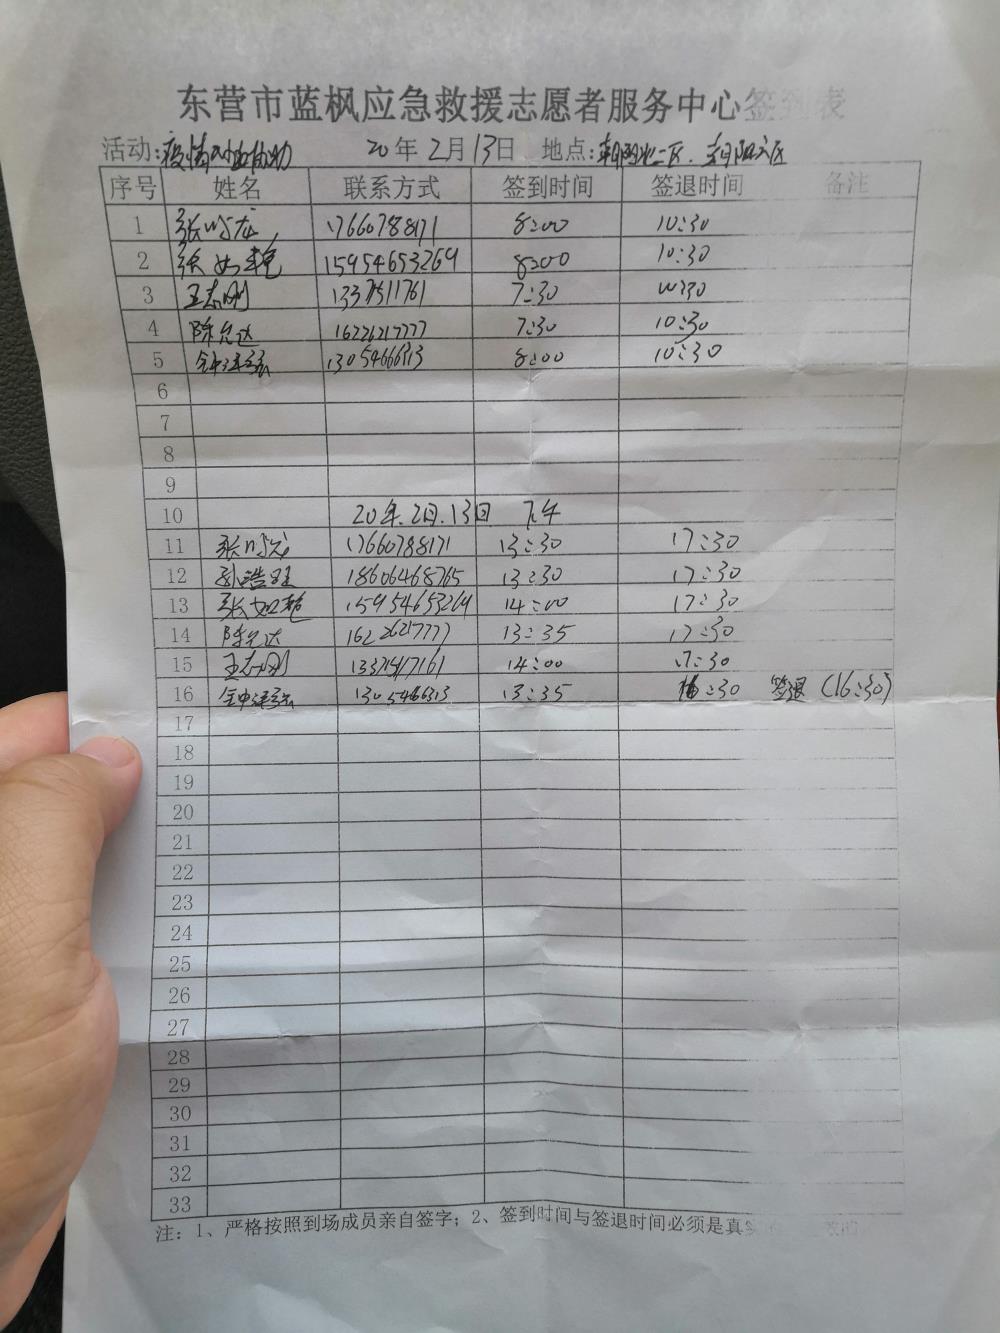 东营市蓝枫应急救援志愿者服务中心签到表
活动: 疫情 协助 20年2月13日 地点:
序号 姓名 联系方式 签到时间 签退时间 备注
1 张 17660788171 8:00 10:30
2 张如艳 15954653269 8:00 10:30
3 王志刚 7:30 10:30
4 陈允达 16226217777 7:30 10:30
5 13054666313 8:00 10:30
6
7
8
9
10 20年.2月.13日 下午
11 张 17660788171 13:30 17:30
12 孙浩旺 18606468765 13:30 17:30
13 张如艳 15954653269 14:00 17:30
14 陈允达 16226217777 13:35 17:30
15 王志刚 14:00 17:30
16 13054666313 13:35 :30 签退 (16:30)
17
18
19
20
21
22
23
24
25
26
27
28
29
30
31
32
33
注: 1、严格按照到场成员亲自签字; 2、签到时间与签退时间必须是真实